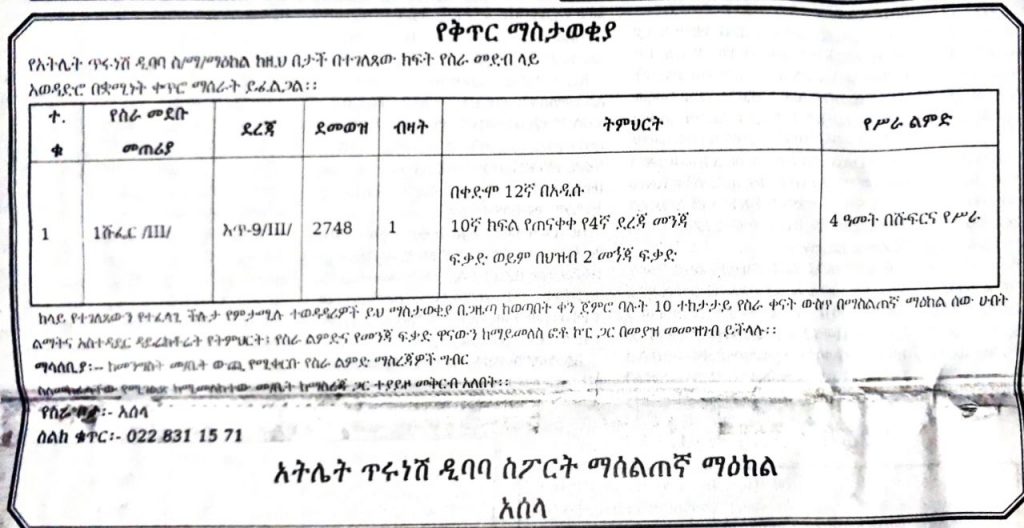 የቅጥር ማስታወቂያ
የአትሌት ጥሩነሽ ዲባባ ስ/ማ/ማዕከል ከዚህ በታች በተገለጸው ክፍት የስራ መደብ ላይ
አወዳድሮ በቋሚነት ቀጥሮ ማሰራት ይፈልጋል፡፡
ተ.ቁ የስራ መደቡ መጠሪያ ደረጃ ደመወዝ ብዛት ትምህርት የሥራ ልምድ
1 1ሹፌር /III/ እጥ-9/III/ 2748 1 በቀድሞ 12ኛ በአዲሱ
10ኛ ክፍል የጠናቀቀ የ4ኛ ደረጃ መንጃ
ፍቃድ ወይም በህዝብ 2 መንጃ ፍቃድ
4 ዓመት በሹፍርና የሥራ
ከላይ የተገለጸውን የተፈላጊ ችሎታ የምታሟሉ ተወዳዳሪዎች ይህ ማስታወቂያ በጋዜጣ ከወጣበት ቀን ጀምሮ ባሉት 10 ተከታታይ የስራ ቀናት ውስጥ በማሰልጠኛ ማዕከል ሰው ሀብት
ልማትና አስተዳደር ዳይሬክቶሬት የትምህርት፤ የስራ ልምድና የመንጃ ፍቃድ ዋናውን ከማይመለስ ፎቶ ኮፒ ጋር በመያዝ መመዝገብ ይችላሉ፡፡
ማሳሰቢያ፡- ከመንግስት መስሪቤት ውጪ የሚቀርቡ የስራ ልምድ ማስረጃዎች ግብር
ስለመከፈላቸው የሚገልጽ ከሚመለከተው መስሪቤት ከማስረጃ ጋር ተያይዞ መቅርብ አለበት፡፡
የስራ ቦታ፡- አሰላ
ስልክ ቁጥር፡- 022 831 15 71
አትሌት ጥሩነሽ ዲባባ ስፖርት ማሰልጠኛ ማዕከል
አሰላ